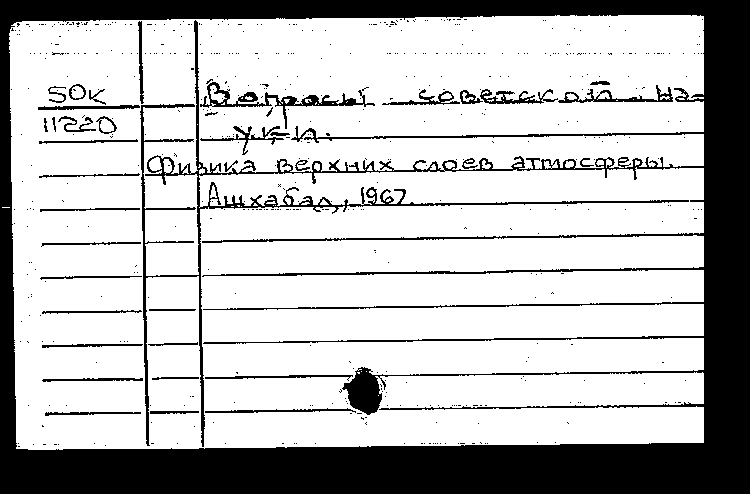 50к Вопросы советской на-
11220 уки.
Физика верхних слоев атмосферы.
Ашхабад, 1967.